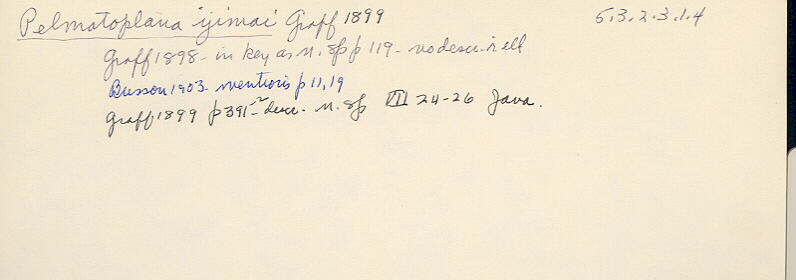 Pelmatoplana ijimai Graff 1899 5.3.2.3.1.4
Graff 1898 - in key as n. sp p 119 - no descr. or ill
Busson 1903 - mentions p 11, 19
Graff 1899 p 391-2 descr. n. sp VII 24-26 Java.